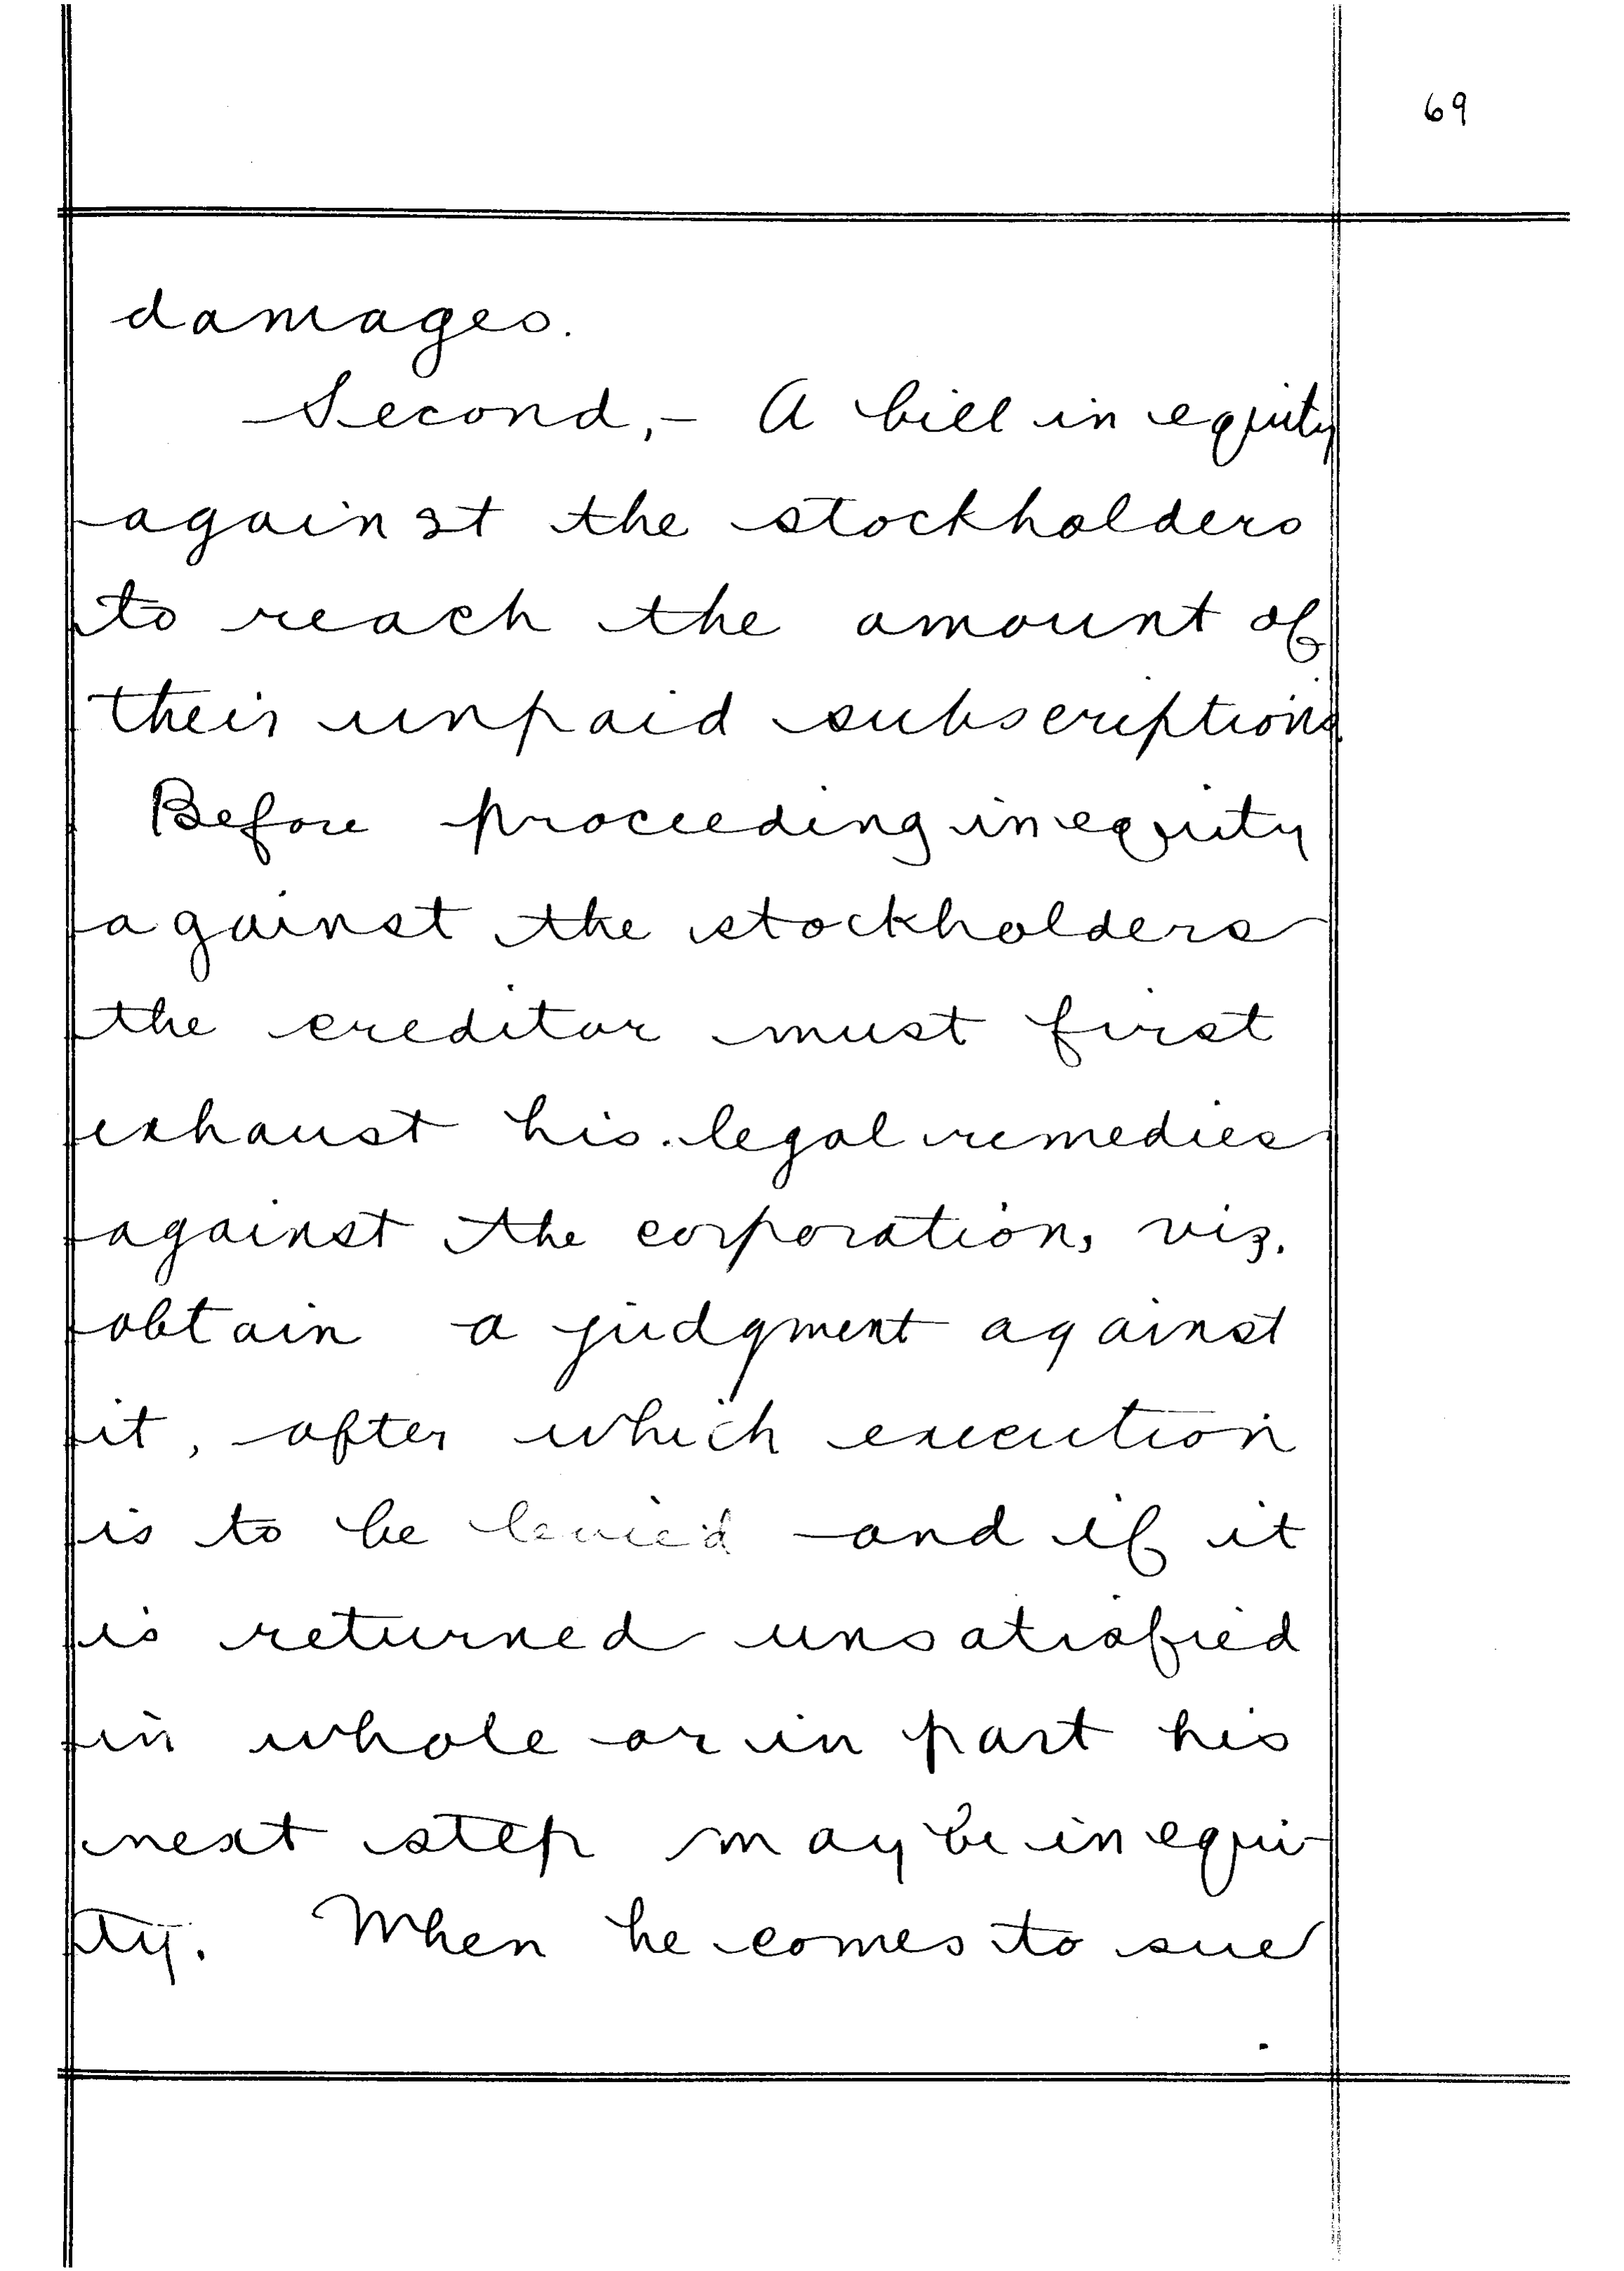 69
damages.
Second,- A bill in equity
against the stockholders
to reach the amount of
their unpaid subscriptions.
Before proceeding in equity
against the stockholders
the creditor must first
exhaust his legal remedies
against the corporation, viz.
obtain a judgment against
it, after which execution
is to be levied and if it
is returned unsatisfied
in whole or in part his
next step may be in equi-
ty. When he comes to sue